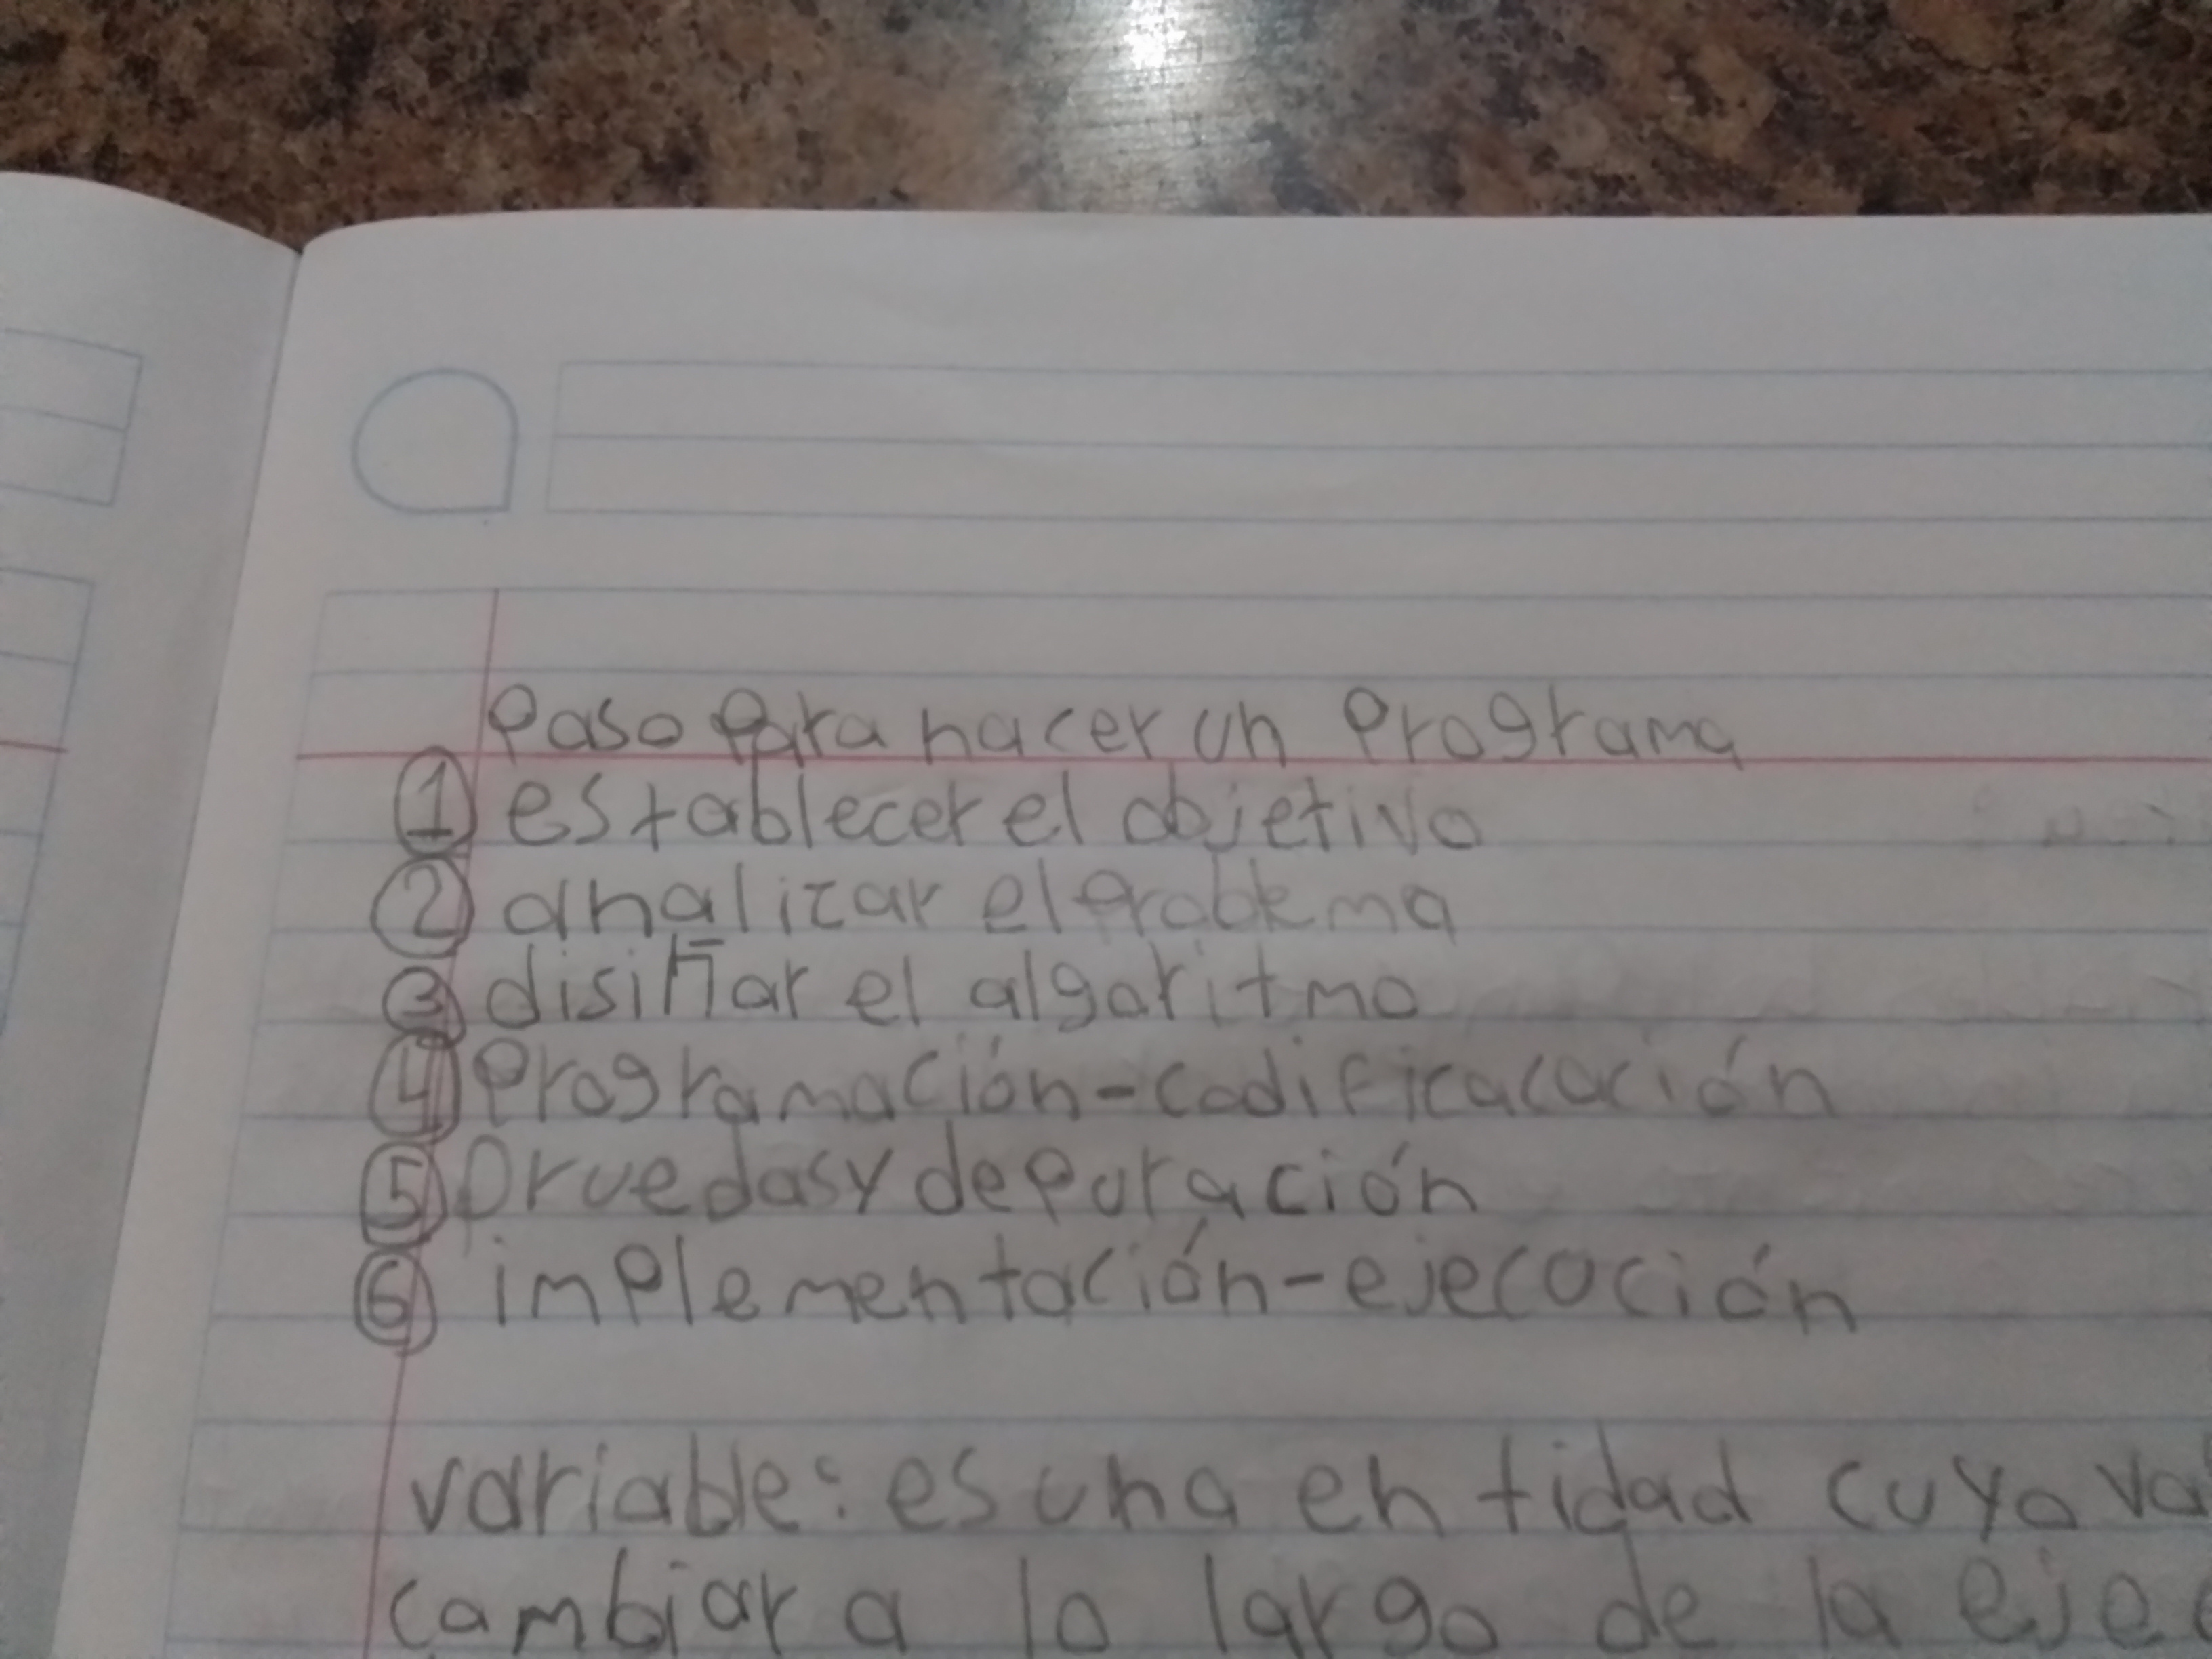 Paso Para hacer un Programa
1 establecer el objetivo
2 analizar el Problema
3 disiñar el algoritmo
4 Programación-codificacación
5 pruedas y depuración
6 implementación-ejecución
variable: es una entidad cuyo
cambiar a lo largo de la